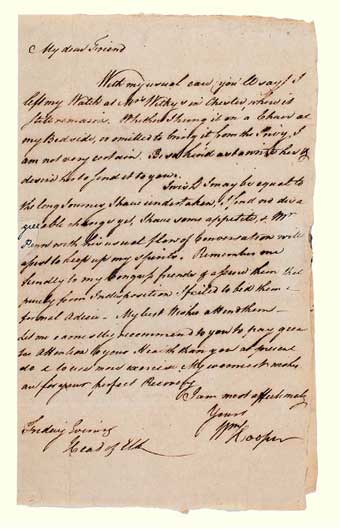 My dear Friend
With my usual care, you'll say, I
left my Watch at Mrs Withy's in Chester, where is
still remains. Whether I hung it on a Chair at
my Bed side, or omitted to bring it from the Privy, I
am not very certain. Be so kind as to write to her &
desire her to send it to you.
I wish I may be equal to
the long Journey I have undertaken. I find no disa
greeable change yet, I have some appetite, & Mr
Penn with his usual flow of Conversation will
assist to keep up my Spirits. Remember me
kindly to my Congress friends & assure them that
purely from Indisposition I failed to bid them a
formal Adieu — My best Wishes attend them —
Let me earnestly recommend to you to pay grea
ter Attention to your Health than you at present
do & to use more exercise. My warmest wishes
are for your perfect Recovery
I am most affectionately
Yours
Wm Hooper
Friday Evening
Head of Elk